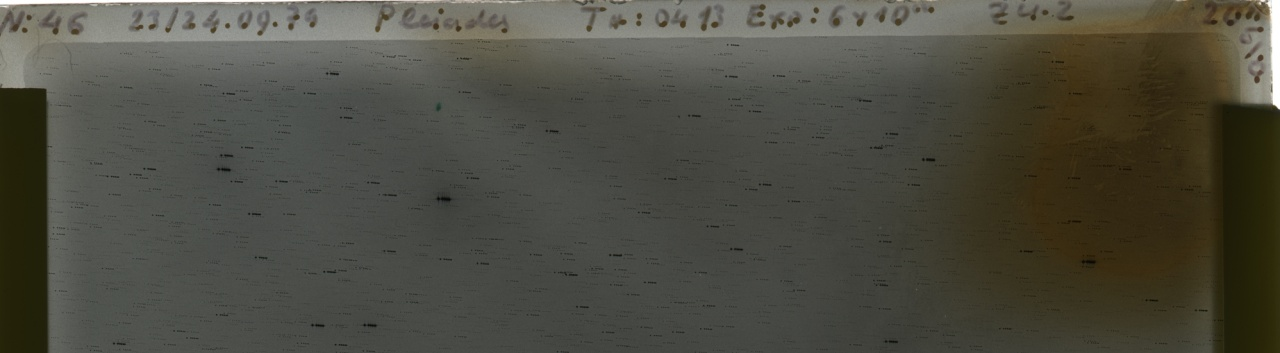 N: 46 23/24.09.79 Pleiades Tr: 0413 Exp: 6x10ᵐ Z4.2